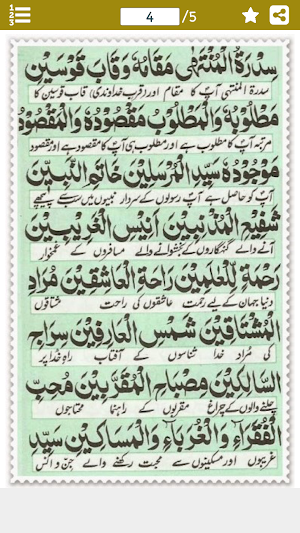 4 /5
سِدْرَةُ الْمُنْتَهٰى مَقَامُهٗ وَقَابَ قَوْسَيْنِ
سدرۃ المنتہیٰ آپؐ کا مقام اور (قرب خداوندی) قاب قوسین کا
مَطْلُوْبُهٗ وَالْمَطْلُوْبُ مَقْصُوْدُهٗ وَالْمَقْصُوْدُ
مرتبہ آپؐ کا مطلوب ہے اور مطلوب ہی آپؐ کا مقصود ہے اور مقصود
مَوْجُوْدُهٗ سَيِّدِ الْمُرْسَلِيْنَ خَاتِمِ النَّبِيِّيْنَ
آپؐ کو حاصل ہے آپؐ رسولوں کے سردار نبیوں میں سب سے پیچھے
شَفِيْعِ الْمُذْنِبِيْنَ اَنِيْسِ الْغَرِيْبِيْنَ
آنے والے گنہگاروں کے بخشوانے والے مسافروں کے غمخوار
رَحْمَةٍ لِّلْعٰلَمِيْنَ رَاحَةِ الْعَاشِقِيْنَ مُرَادِ
دنیا جہان کے لیے رحمت عاشقوں کی راحت مشتاقوں
الْمُشْتَاقِيْنَ شَمْسِ الْعَارِفِيْنَ سِرَاجِ
کی مُراد خدا شناسوں کے آفتاب راہِ خدا پر
السَّالِكِيْنَ مِصْبَاحِ الْمُقَرَّبِيْنَ مُحِبِّ
چلنے والوں کے چراغ مقربوں کے راہنما محتاجوں
الْفُقَرَآءِ وَالْغُرَبَآءِ وَالْمَسَاكِيْنِ سَيِّدِ
غریبوں اور مسکینوں سے محبت رکھنے والے جن و انس